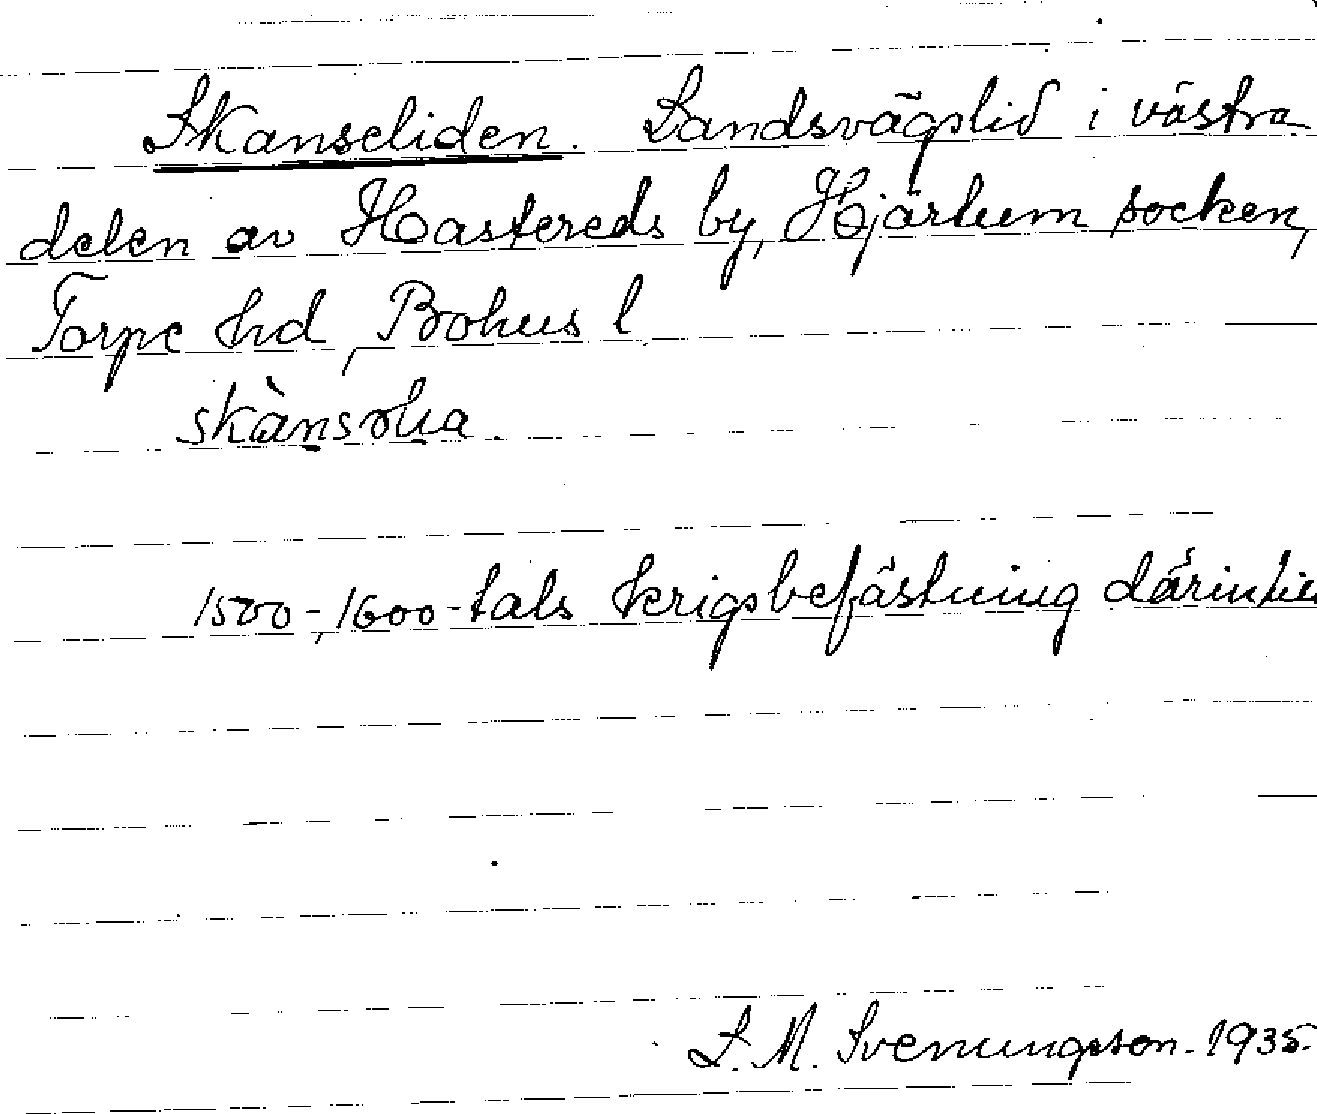 Skanseliden. Landsvägslid i västra
delen av Hastereds by, Hjärtum socken,
Torpe hd, Bohus l
1500-, 1600-tals krigsbefästning därintill
S. M. Svenungsson. 1935.